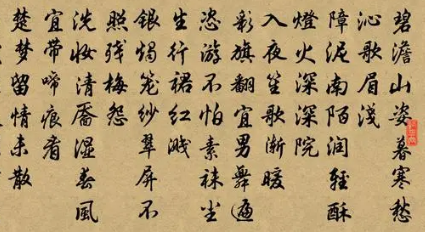 碧澹山姿暮寒愁
沁歌眉淺
障泥南陌润轻酥
燈火深深院
入夜笙歌漸暖
彩旗翻宜男舞遍
恣游不怕素袜尘
生行裙红溅
銀燭笼紗翠屏不
照残梅怨
洗妆清靥湿春風
宜带啼痕看
楚梦留情未散